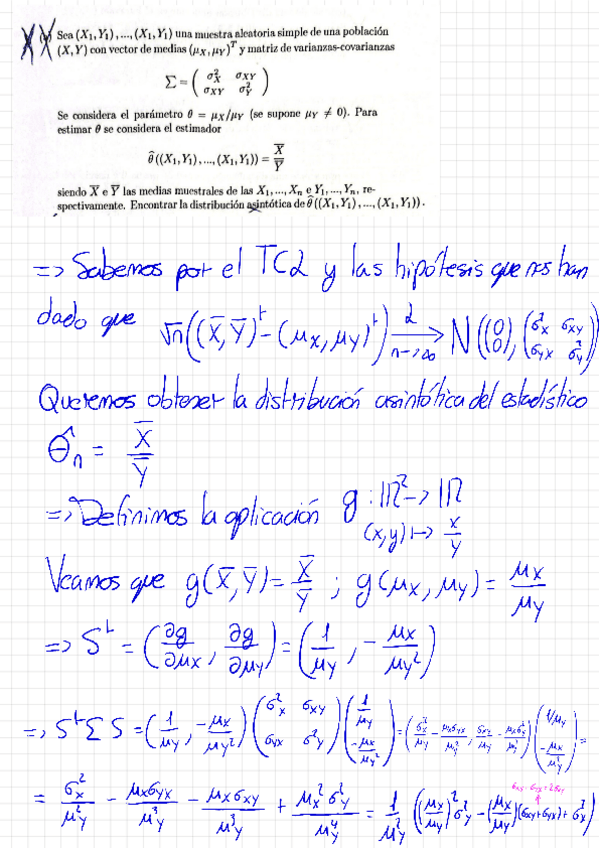 Sea (X₁, Y₁), ..., (X₁, Y₁) una muestra aleatoria simple de una población
(X, Y) con vector de medias (μ_X, μ_Y)^T y matriz de varianzas-covarianzas
Σ = ( σ²_X σ_XY ; σ_XY σ²_Y )
Se considera el parámetro θ = μ_X/μ_Y (se supone μ_Y ≠ 0). Para
estimar θ se considera el estimador
θ̂ ((X₁, Y₁), ..., (X₁, Y₁)) = X̄/Ȳ
siendo X̄ e Ȳ las medias muestrales de las X₁, ..., Xₙ e Y₁, ..., Yₙ, re-
spectivamente. Encontrar la distribución asintótica de θ̂ ((X₁, Y₁), ..., (X₁, Y₁)).
=> Sabemos por el TCL y las hipótesis que nos han
dado que √n((X̄, Ȳ)^t - (μ_X, μ_Y)^t) →^L_{n→∞} N((0 ; 0), (σ²_X σ_XY ; σ_YX σ²_Y))
Queremos obtener la distribución asintótica del estadístico
θ̂ₙ = X̄/Ȳ
=> Definimos la aplicación g : ℝ² → ℝ
(x, y) ↦ x/y
Veamos que g(X̄, Ȳ) = X̄/Ȳ ; g(μ_X, μ_Y) = μ_X/μ_Y
=> S^t = (∂g/∂μ_X , ∂g/∂μ_Y) = (1/μ_Y , -μ_X/μ_Y²)
=> S^t Σ S = (1/μ_Y , -μ_X/μ_Y²) (σ²_X σ_XY ; σ_YX σ²_Y) (1/μ_Y ; -μ_X/μ_Y²) = (σ²_X/μ_Y - μ_X σ_YX/μ_Y² , σ_XY/μ_Y - μ_X σ²_Y/μ_Y²) (1/μ_Y ; -μ_X/μ_Y²) =
= σ²_X/μ²_Y - μ_X σ_YX/μ³_Y - μ_X σ_XY/μ³_Y + μ_X² σ²_Y/μ⁴_Y = 1/μ²_Y ((μ_X/μ_Y)² σ²_Y - (μ_X/μ_Y)(σ_XY + σ_YX) + σ²_X)